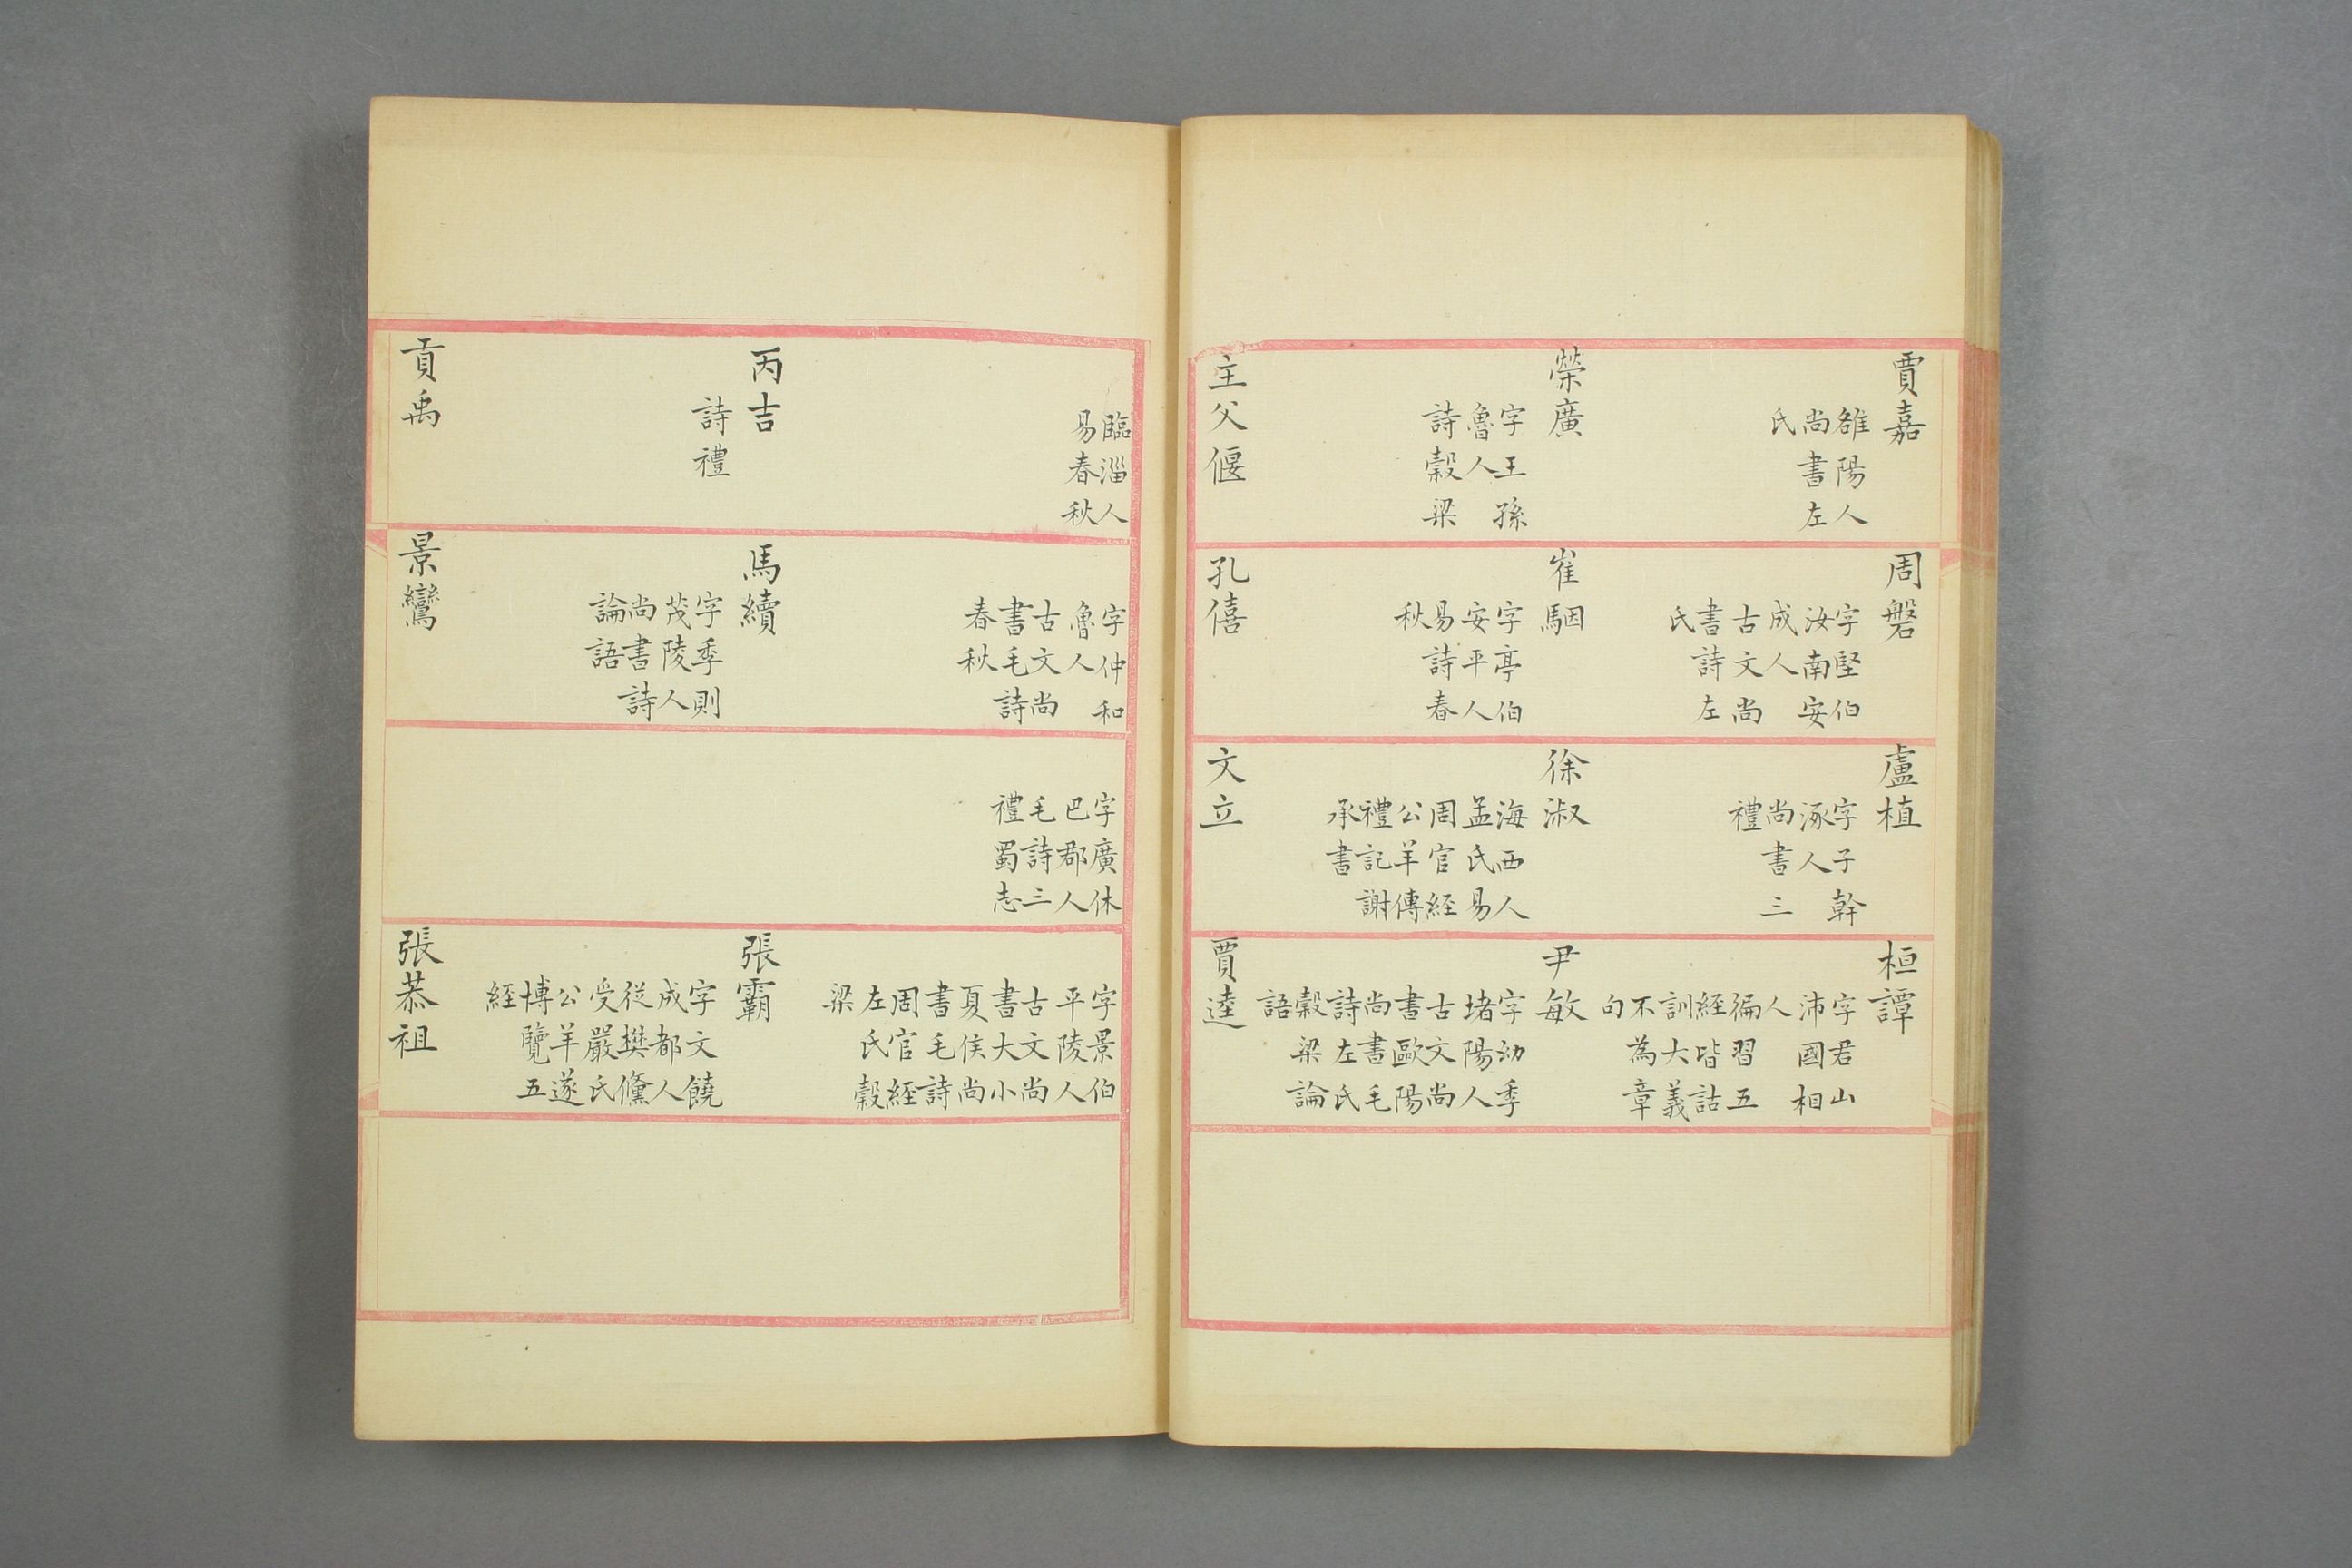 賈嘉
雒陽人
尚書左
氏
榮廣
字王孫
魯人
詩穀梁
主父偃
周磐
字堅伯
汝南安
成人
古文尚
書詩左
氏
崔駰
字亭伯
安平人
易詩春
秋
孔僖
盧植
字子幹
涿人
尚書三
禮
徐淑
海西人
孟氏易
周官經
公羊傳
禮記謝
承書
文立
桓譚
字君山
沛國相
人
徧習五
經皆詁
訓大義
不為章
句
尹敏
字幼季
堵陽人
古文尚
書歐陽
尚書毛
詩左氏
穀梁論
語
賈逵
臨淄人
易春秋
丙吉
詩禮
貢禹
字仲和
魯人
古文尚
書毛詩
春秋
馬續
字季則
茂陵人
尚書詩
論語
景鸞
字廣休
巴郡人
毛詩三
禮蜀志
字景伯
平陵人
古文尚
書大小
夏侯尚
書毛詩
周官經
左氏穀
梁
張霸
字文饒
成都人
從樊儵
受嚴氏
公羊遂
博覽五
經
張恭祖